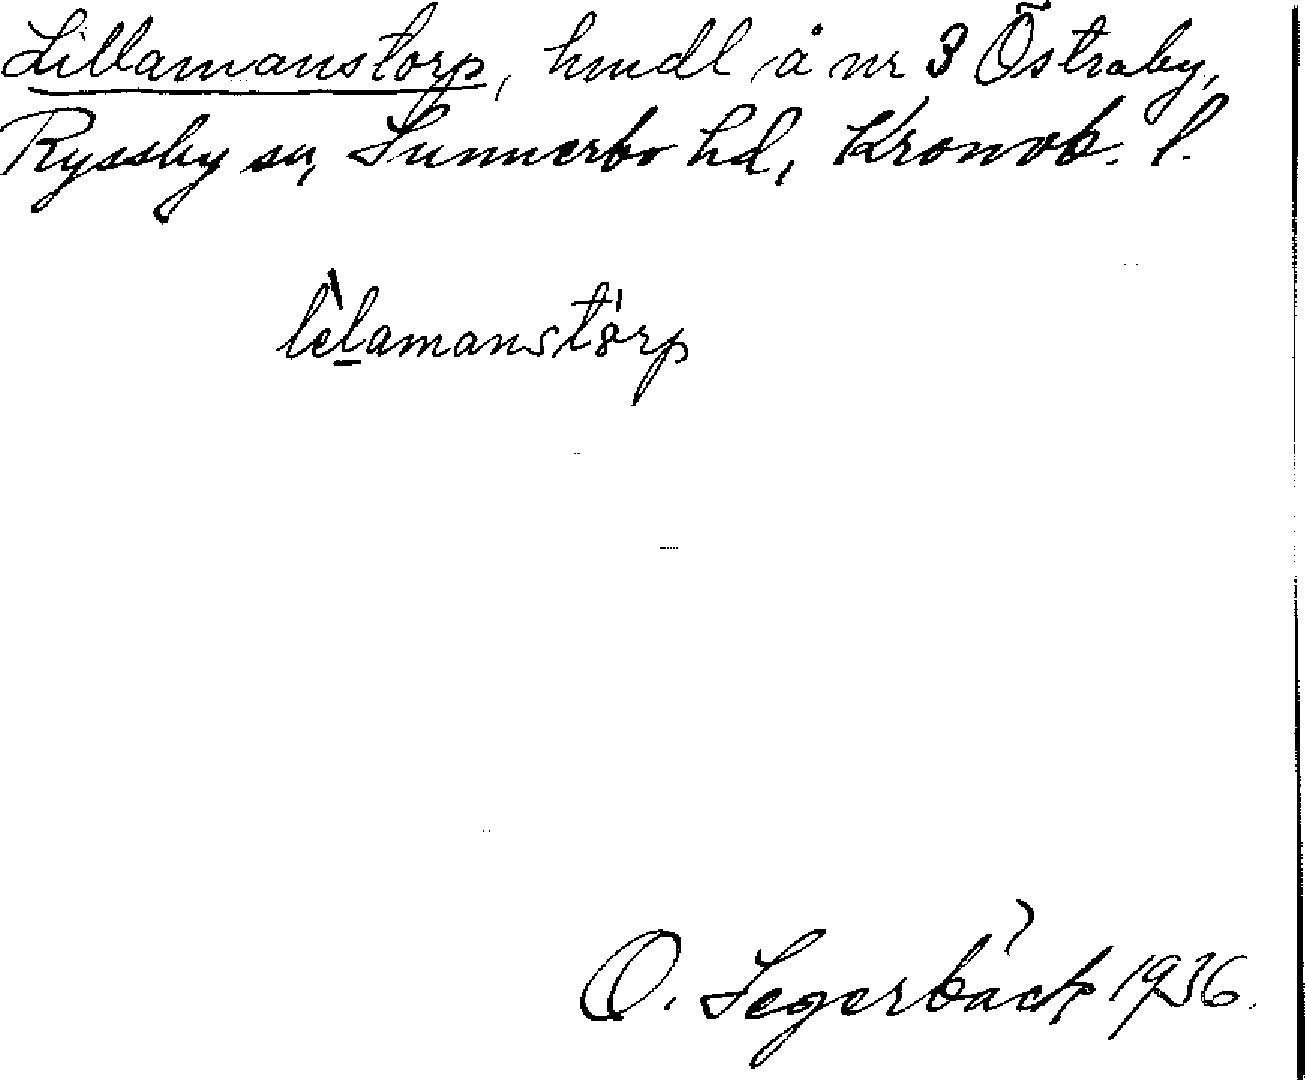 Lillamanstorp, hmdl å nr 3 Östraby,
Ryssby sn, Sunnerbo hd, Kronob. l.
lèlamanstórp
O. Segerbäck 1936.